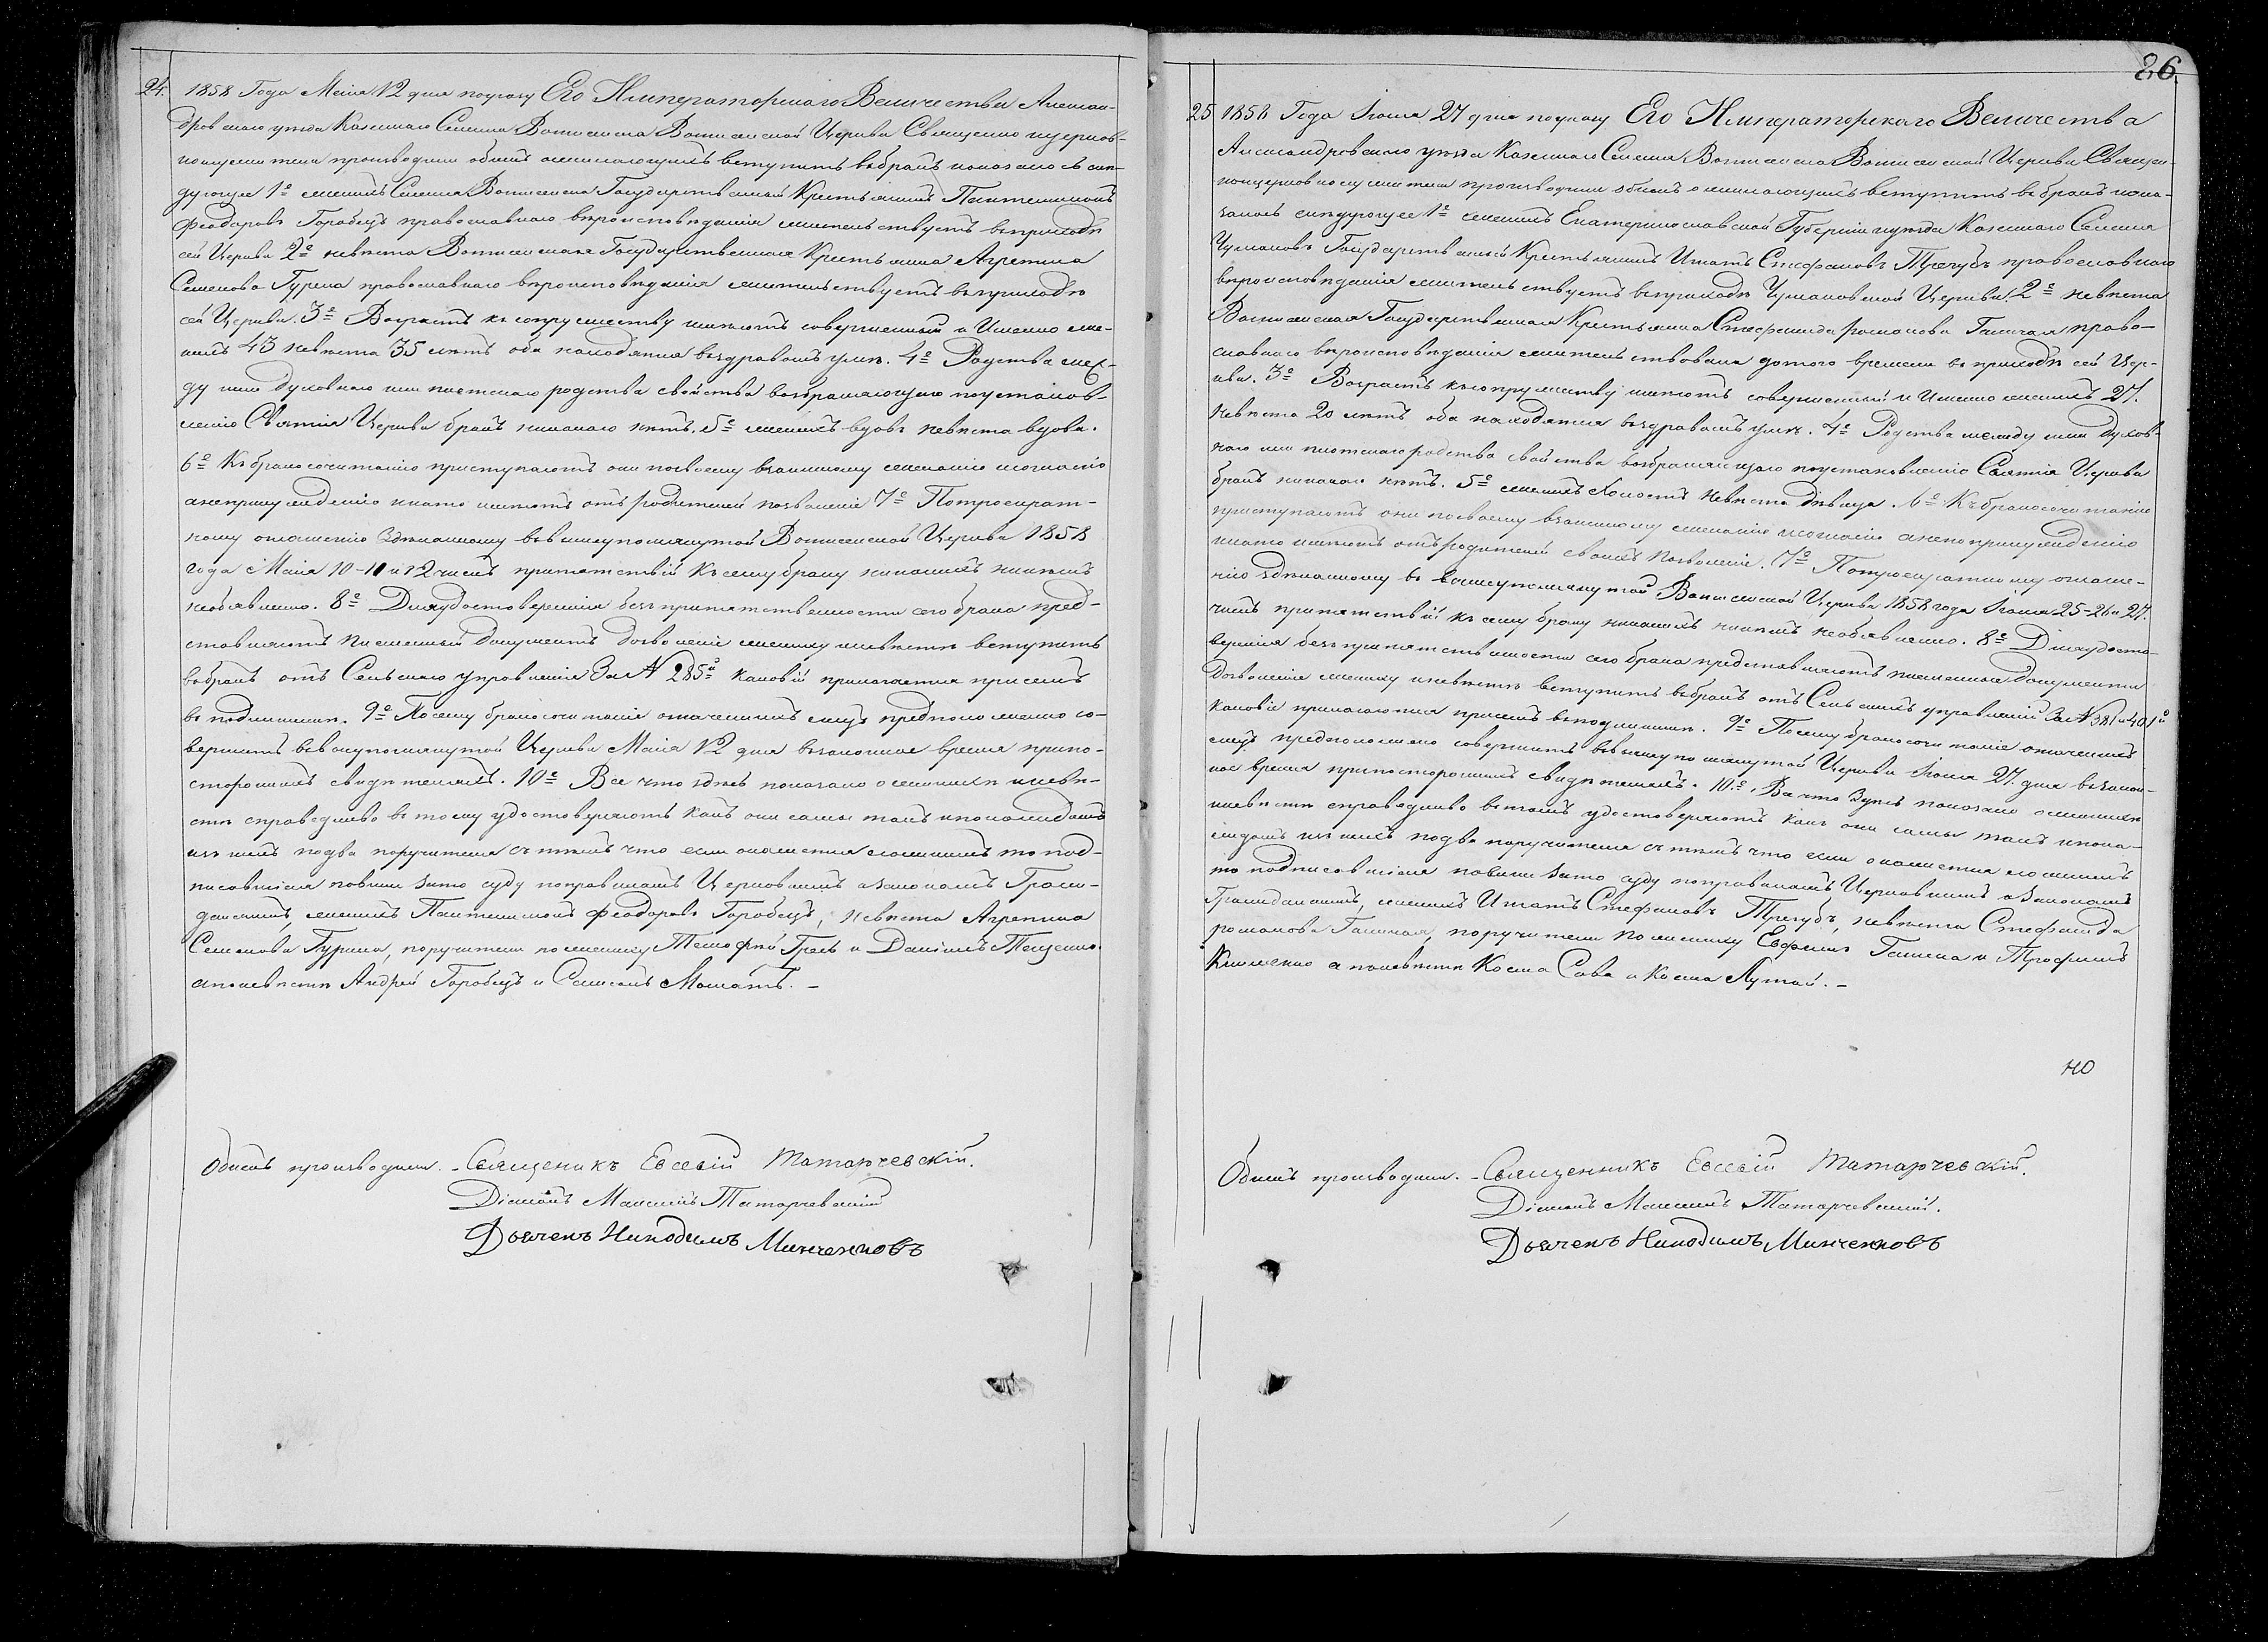 24. 1858 Года Маія 12 дня по указу Его Императорскаго Величества Алексан-
дровскаго уезда Казеннаго Селенія Воскресенской Церкви Священно и церков-
нослужители производили обыскъ о желающихъ вступить въ бракъ и оказалось слѣ-
дующее 1е женихъ Селенія Государственный Крестьянинъ Пантелеимонъ
Феодоровъ Горобецъ православнаго вѣроисповѣданія жительствуетъ въ приходѣ
сей Церкви 2е невѣста Государственная Крестьянка Агрепина
Семенова Гурина православнаго вѣроисповѣданія жительствуетъ въ приходѣ
сей Церкви. 3е Возрастъ къ супружеству имѣютъ совершенный и Именно же-
нихъ 43 невѣста 35 лѣтъ оба находятся въ здравомъ умѣ. 4е Родства меж-
ду ими духовнаго или плотскаго родства свойства возбраняющаго по установ-
ленію Святыя Церкви бракъ никакого нѣтъ. 5е женихъ вдовъ невѣста вдова.
6е Къ бракосочетанію приступаютъ они по своему взаимному желанію и согласію
а не принужденію и на то имѣютъ отъ родителей позволеніе 7е По троекрат-
ному оглашенію зделанному въ вышеупомянутой Церкви 1858
года Маія 10-11 и 12 числъ препятствій къ сему браку никакихъ никѣмъ
необявлено. 8е Для удостоверенія безпрепятственности сего брака пред-
ставляютъ писменный документъ дозволеніе жениху и невѣсте вступить
въ бракъ отъ Сельскаго управленія За N 285й каковый прилагается при семъ
въ подлиннике. 9е Посему бракосочетаніе означенныхъ лицъ предположено со-
вершить въ вышеупомянутой Церкви Маія 12 дня въ законное время при по-
стороннихъ свидѣтеляхъ. 10е Все что здѣсь показано о женихе и невѣ-
сте справедливо въ томъ удостоверяютъ какъ они сами такъ и по каждомъ
изъ нихъ по два поручителя съ тѣмъ что если окажется ложнымъ то под-
писавшіеся повинны за то суду по правиламъ Церковнымъ и законамъ Граж-
данскимъ, женихъ Пантелеимонъ Феодоровъ Горобецъ, невѣста Агрепина
Семенова Гурина, поручители по жениху Тимофей Грекъ и Даніилъ Тященко
а по невѣсте Андрей Горобецъ и Самсонъ Мошатъ. -
Обыскъ производили. - Священикъ Евсевій Татарчевскій.
Діаконъ Максимъ Татарчевскій
Дьячекъ Никодимъ Минченковъ
86.
25 1858 Года Іюля 27 дня по указу Его Императорскаго Величества
Александровскаго уезда Казеннаго Селенія Церкви Священ-
но и церковнослужители производили обыскъ о желающихъ вступить въ бракъ и ока-
залось слѣдующее 1е женихъ Екатеринославской Губерніи и уезда Казеннаго Селенія
Чумаковъ Государственный Крестьянинъ Игнатъ Стефановъ Трегубъ православнаго
вѣроисповѣданія жительствуетъ въ приходѣ Чумаковской Церкви. 2е невѣста
Государственная Крестьянка Стефанида романова Галичая право-
славнаго вѣроисповѣданія жительствовала до того времени въ приходѣ сей Цер-
кви. 3е Возрастъ къ супружеству имѣютъ совершенный и Именно женихъ 27.
невѣста 20 лѣтъ оба находятся въ здравомъ умѣ. 4е Родства между ими духов-
наго или плотскаго родства свойства возбраняющаго по установленію Святыя Церкви
бракъ никакого нѣтъ. 5е женихъ Холостъ невѣста дѣвица. 6е Къ бракосочетанію
приступаютъ они по своему взаимному желанію и согласію а не по принужденію
и на то имѣютъ отъ родителей своихъ позволеніе. 7е По троекратному оглаше-
нію зделанному въ вышеупомянутой Церкви 1858 года Іюля 25-26 и 27.
числъ препятствій къ сему браку никакихъ никѣмъ необявлено. 8е Для удосто-
веренія безпрепятственности сего брака представляютъ писменные документы
дозволеніе жениху и невѣсте вступить въ бракъ отъ Сельскихъ управленій За N 381 и 401й
каковіе прилагаются при семъ въ подлиннике. 9е Посему бракосочетаніе означенныхъ
лицъ предположено совершить въ вышеупомянутой Церкви Іюля 27. дня въ закон-
ное время при постороннихъ свидѣтеляхъ. 10е. Все что здѣсь показано о женихе
и невѣсте справедливо въ томъ удостоверяютъ какъ они сами такъ и по ка-
ждомъ изъ нихъ по два поручителя съ тѣмъ что если окажется ложнымъ
то подписавшіеся повинны за то суду по правиламъ Церковнымъ и Законамъ
Гражданскимъ, женихъ Игнатъ Стефановъ Трегубъ, невѣста Стефанида
романова Галичая, поручители по жениху Евфимъ Галичій и Трофимъ
Клименко а по невѣсте Косма Сова и Косма Лутай. -
но
Обыскъ производили. - Священникъ Евсевій Татарчевскій.
Діаконъ Максимъ Татарчевскій.
Дьячекъ Никодимъ Минченковъ